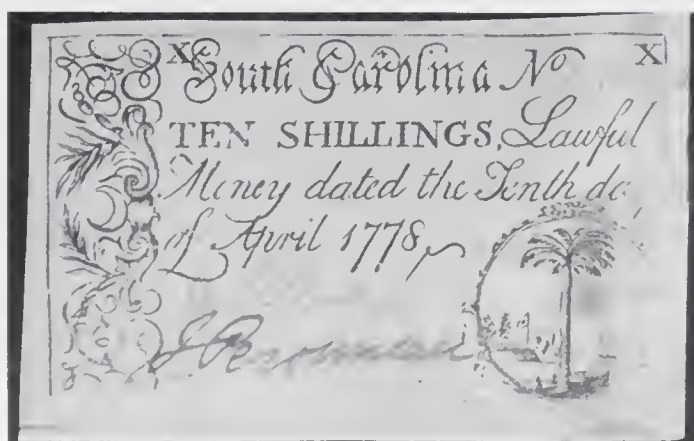 X South Carolina No X
TEN SHILLINGS, Lawful
Money dated the Tenth da
of April 1778,